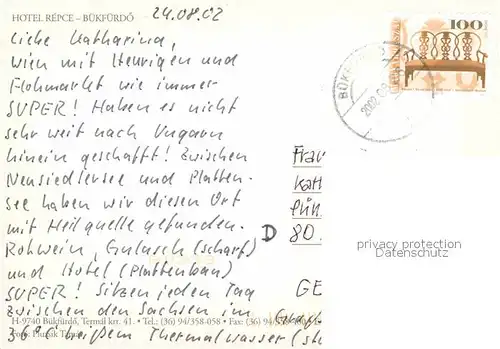 HOTEL RÉPCE – BÜKFÜRDŐ
24.08.02
100
Liebe Katharina,
Wien mit Heurigen und
Flohmarkt wie immer
SUPER! Haben es nicht
sehr weit nach Ungarn
hinein geschafft! Zwischen
Neusiedlersee und Platten-
see haben wir diesen Ort
mit Heilquelle gefunden.
Rotwein, Gulasch (scharf)
und Hotel (Plattenbau)
SUPER! Sitzen jeden Tag
zwischen den Sachsen im
36° heißem Thermalwasser
H-9740 Bükfürdő, Termál krt. 41. • Tel.: (36) 94/358-058 • Fax: (36) 94/
BÜKF
2002.08
Frau
Kath
D 80.
GE
privacy protection
Datenschutz